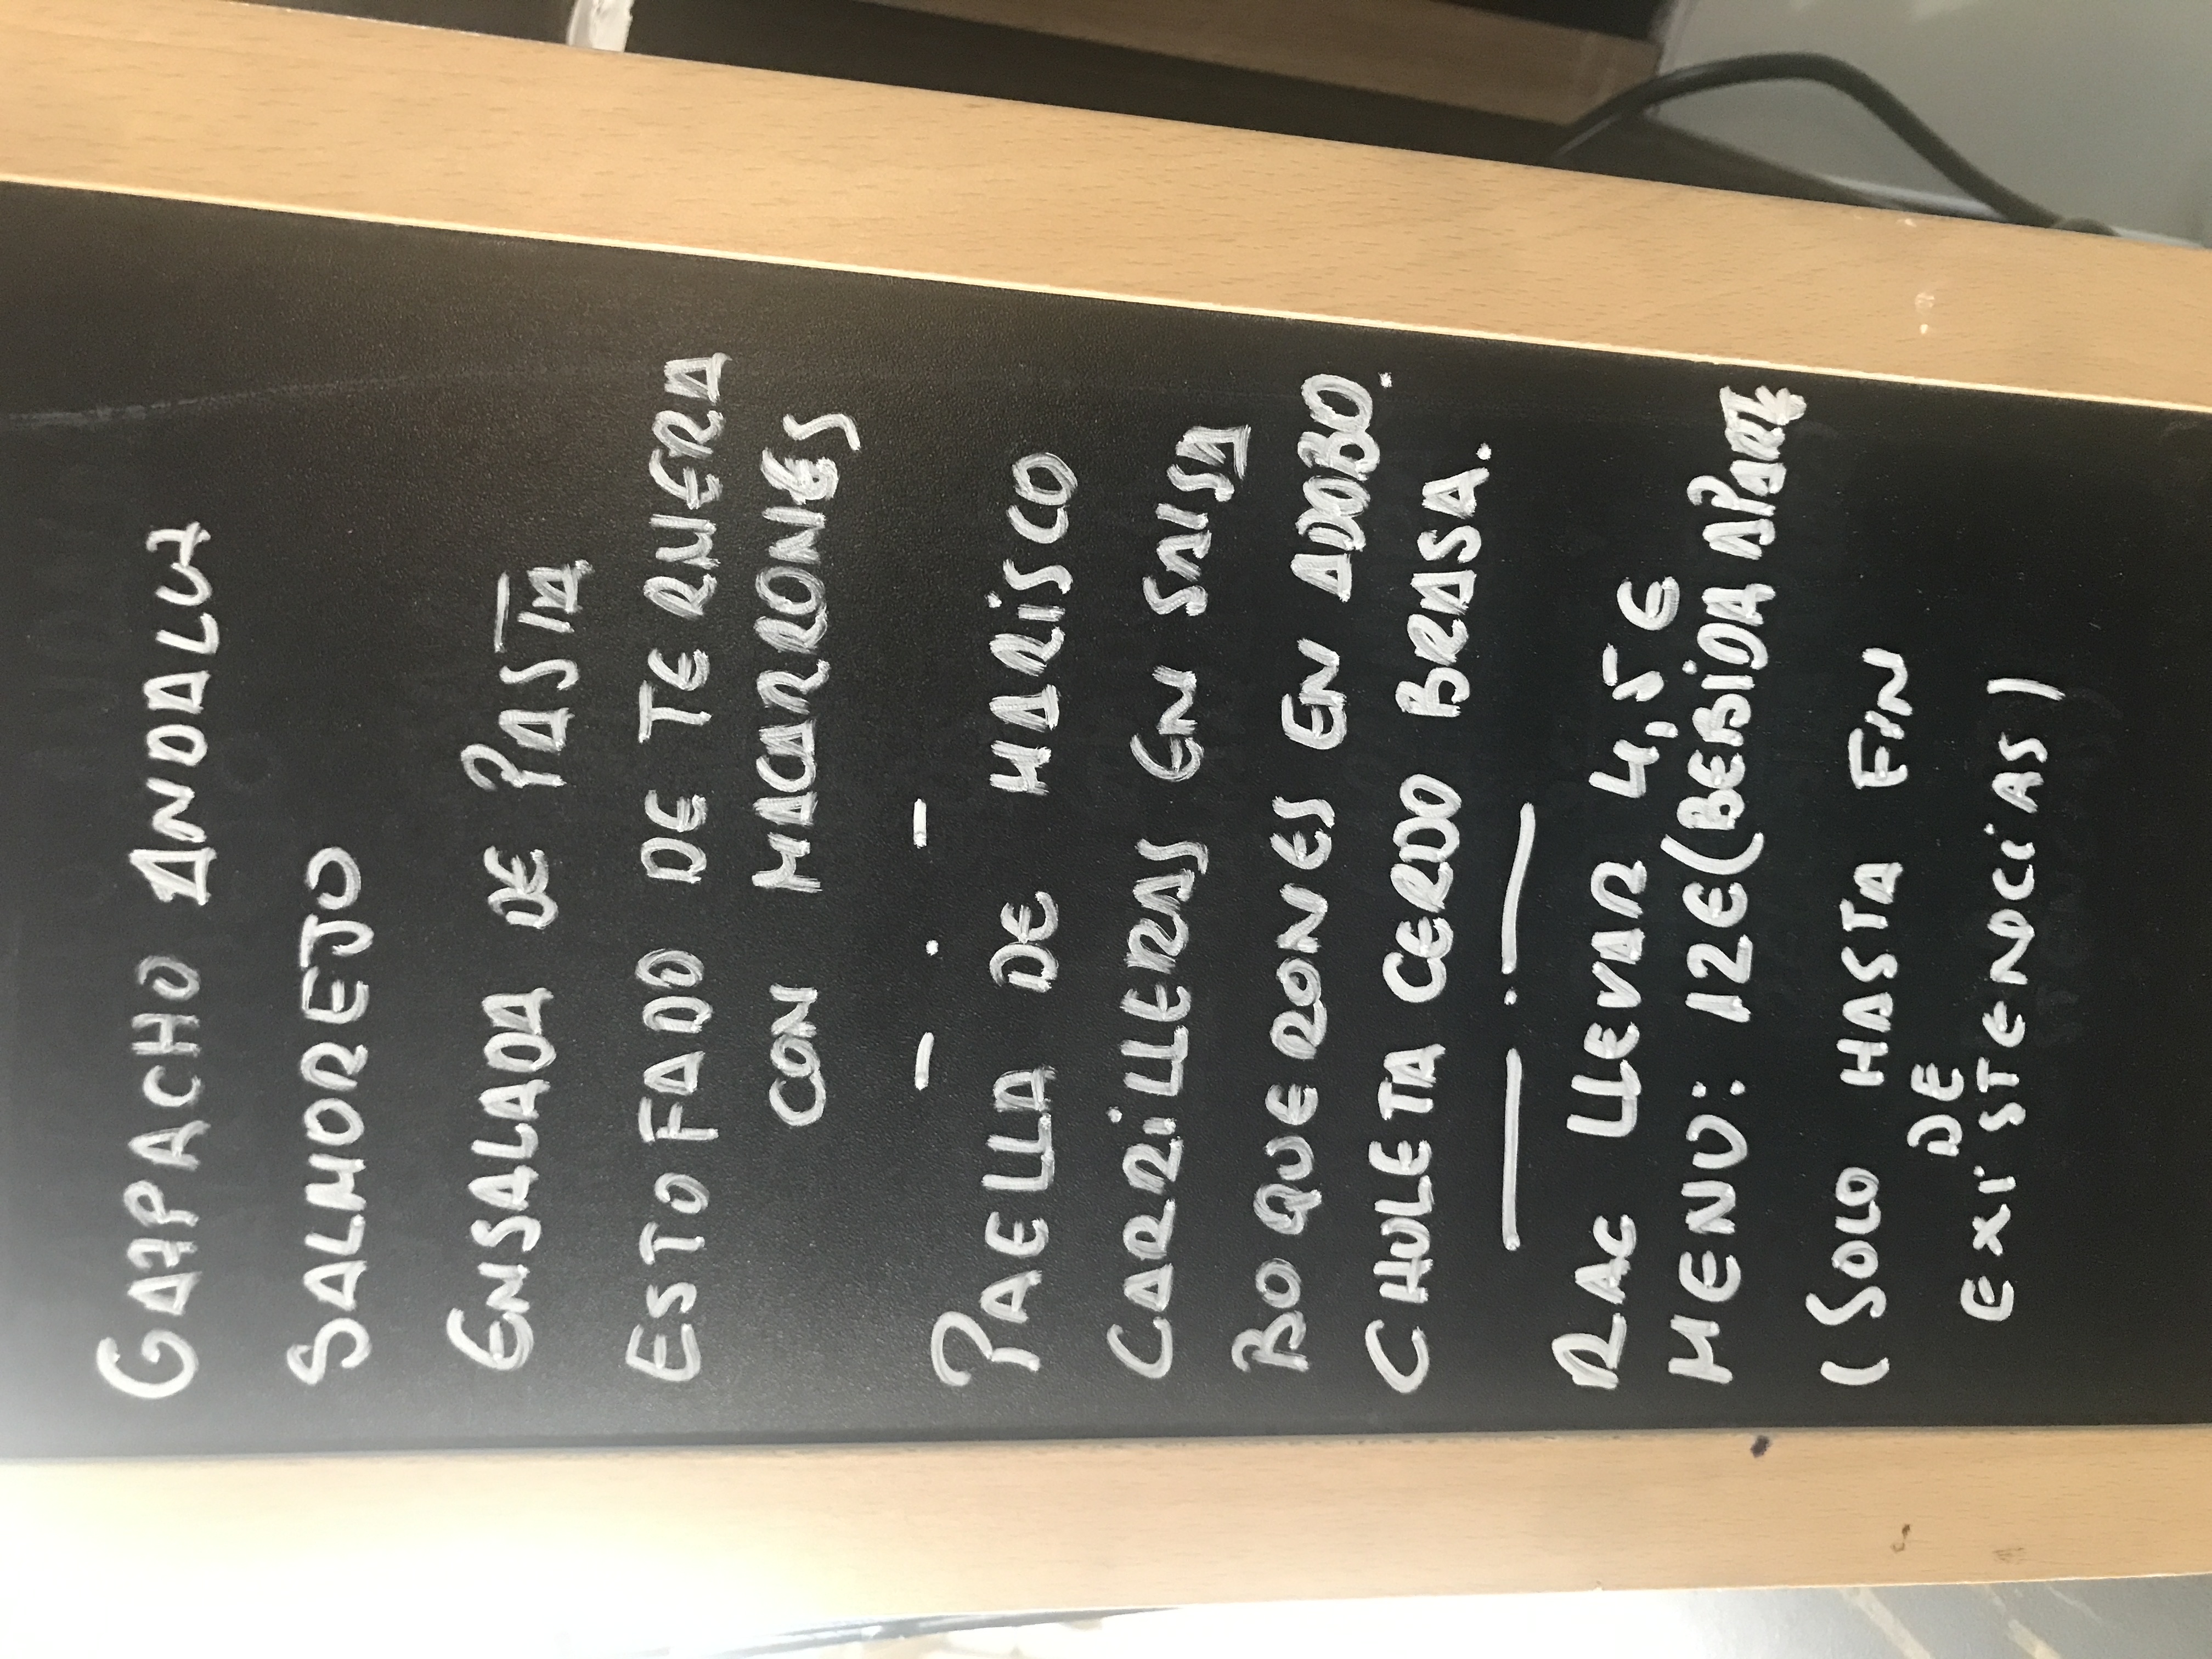 GAZPACHO ANDALUZ
SALMOREJO
ENSALADA DE PASTA
ESTOFADO DE TERNERA
CON MACARRONES
PAELLA DE MARISCO
CARRILLERAS EN SALSA
BOQUERONES EN ADOBO.
CHULETA CERDO BRASA.
RAC LLEVAR 4,5 €
MENU: 12€ (BEBIDA APARTE
(SOLO HASTA FIN
DE
EXISTENDCIAS)